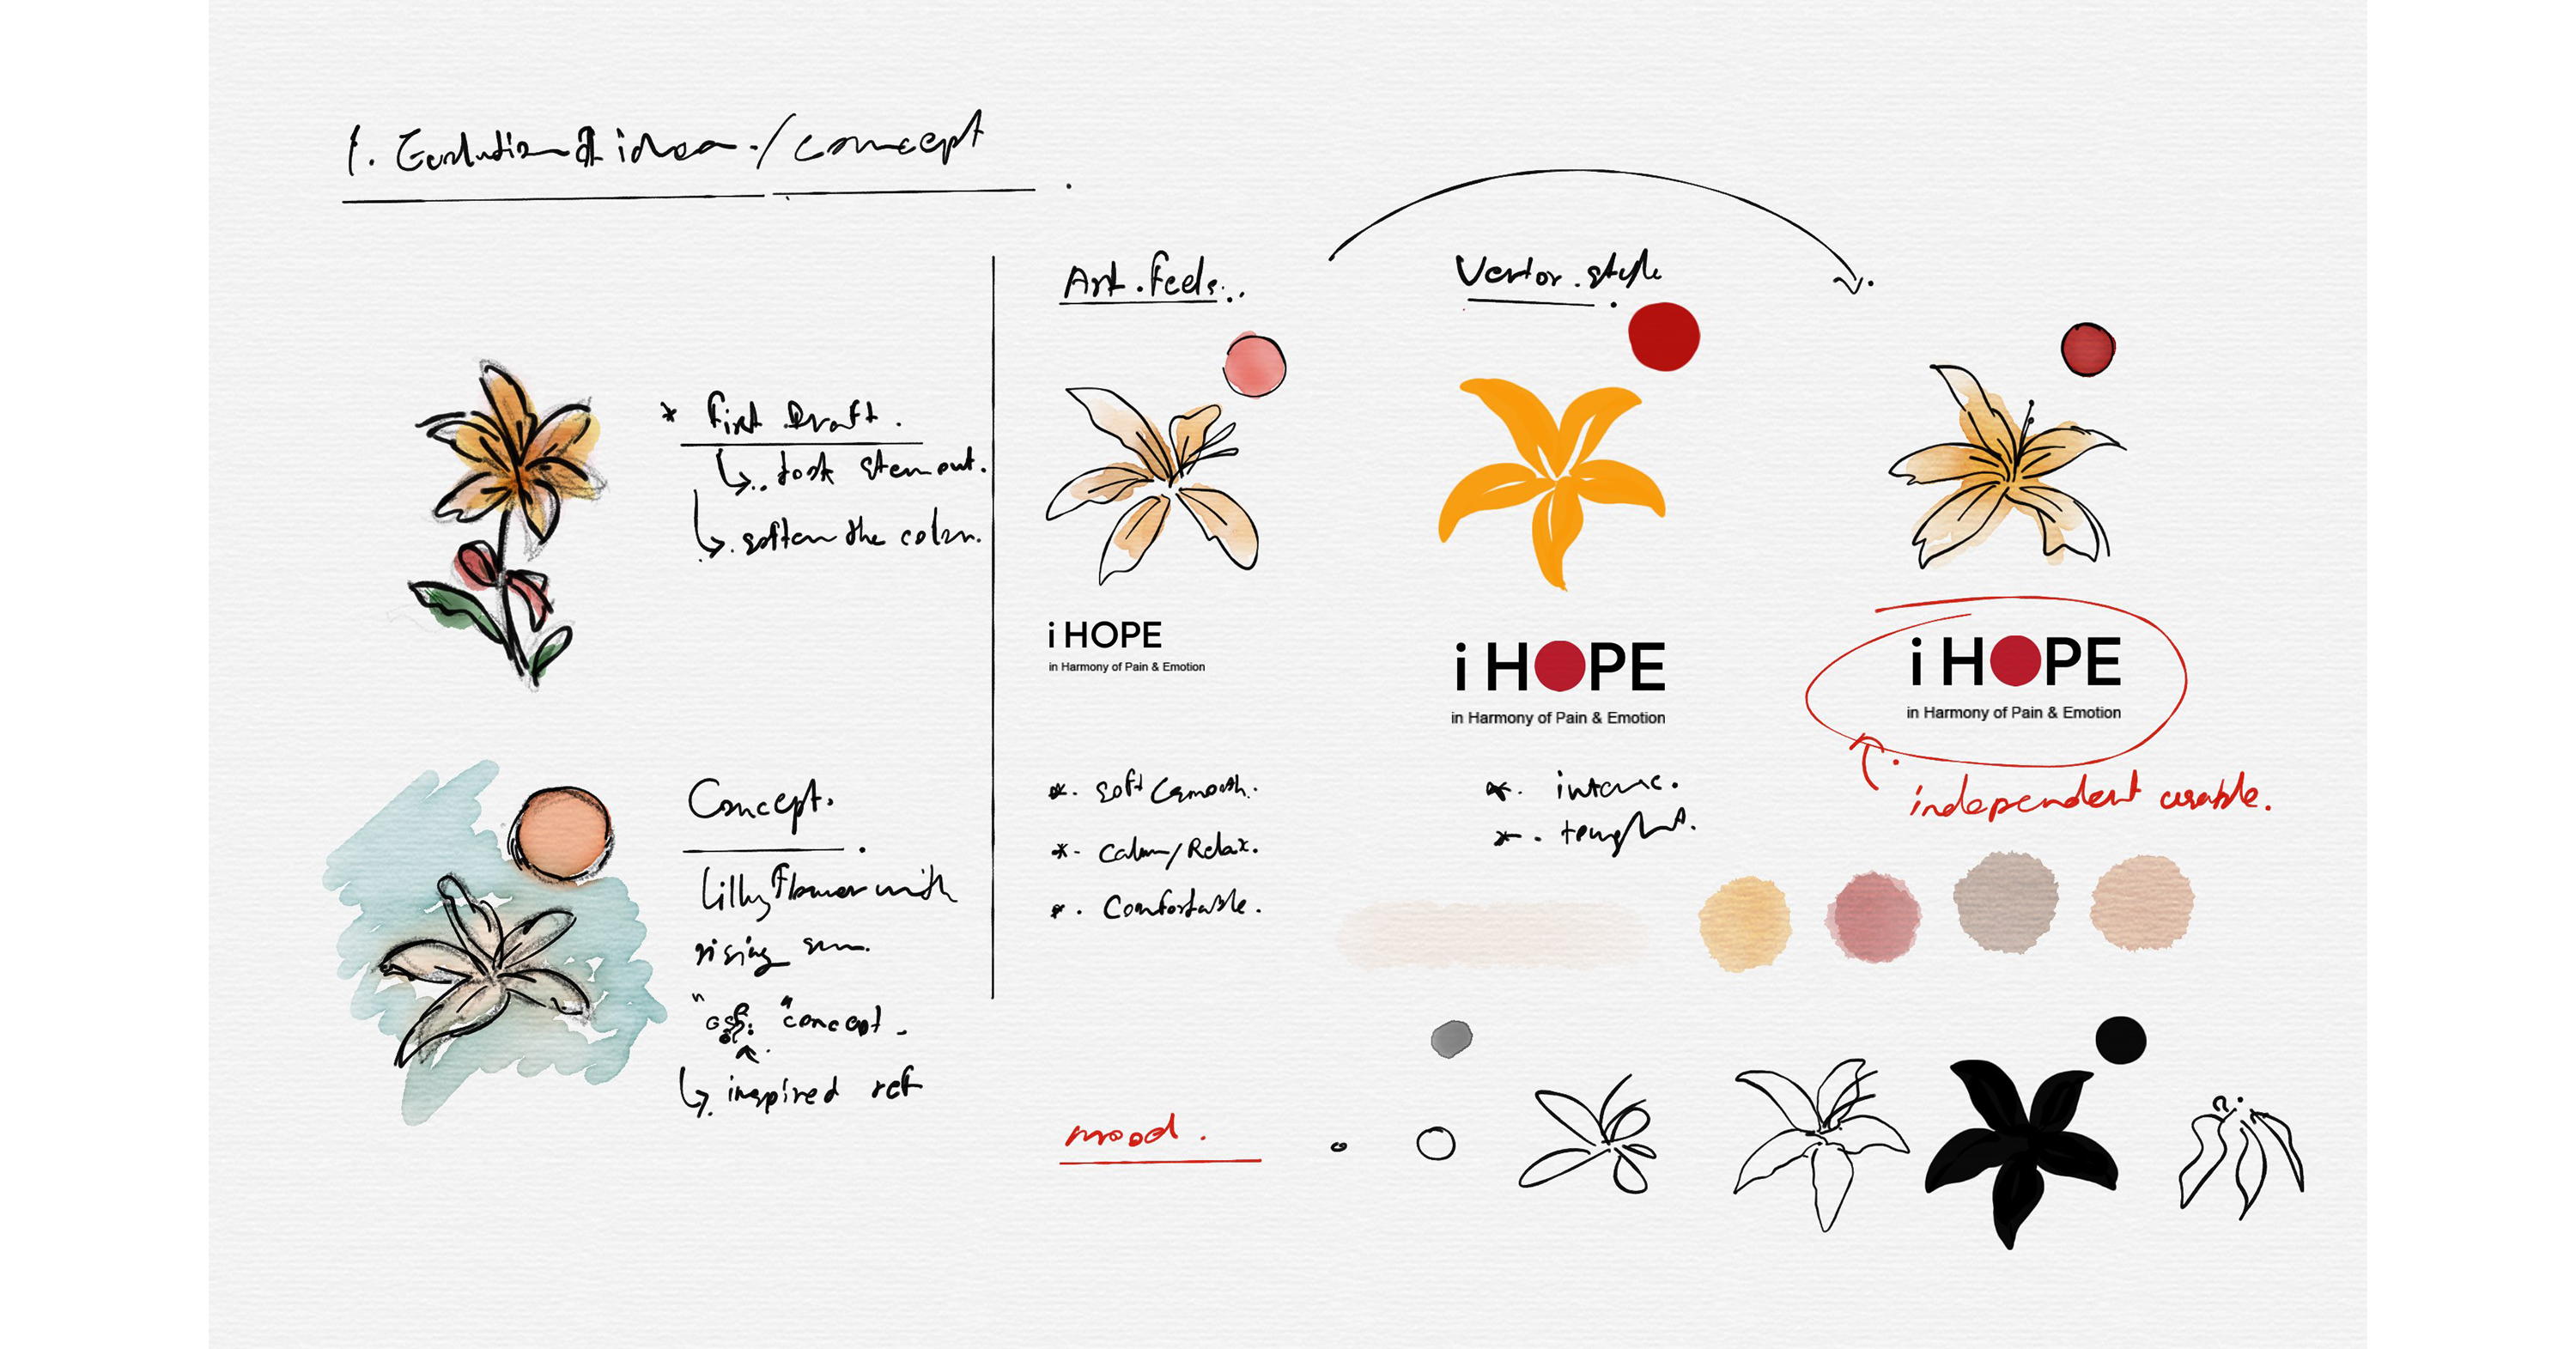 1. Evolution of idea./concept
* First Draft.
took stem out.
soften the color.
Concept.
Lilly Flower with
rising sun.
"concept.
inspired ref
Art. feels..
Vector. style
i HOPE
in Harmony of Pain & Emotion
i HOPE
in Harmony of Pain & Emotion
i HOPE
in Harmony of Pain & Emotion
*. Soft
*. Calm/Relax.
*. Comfortable.
*. intense.
independent usable.
mood.